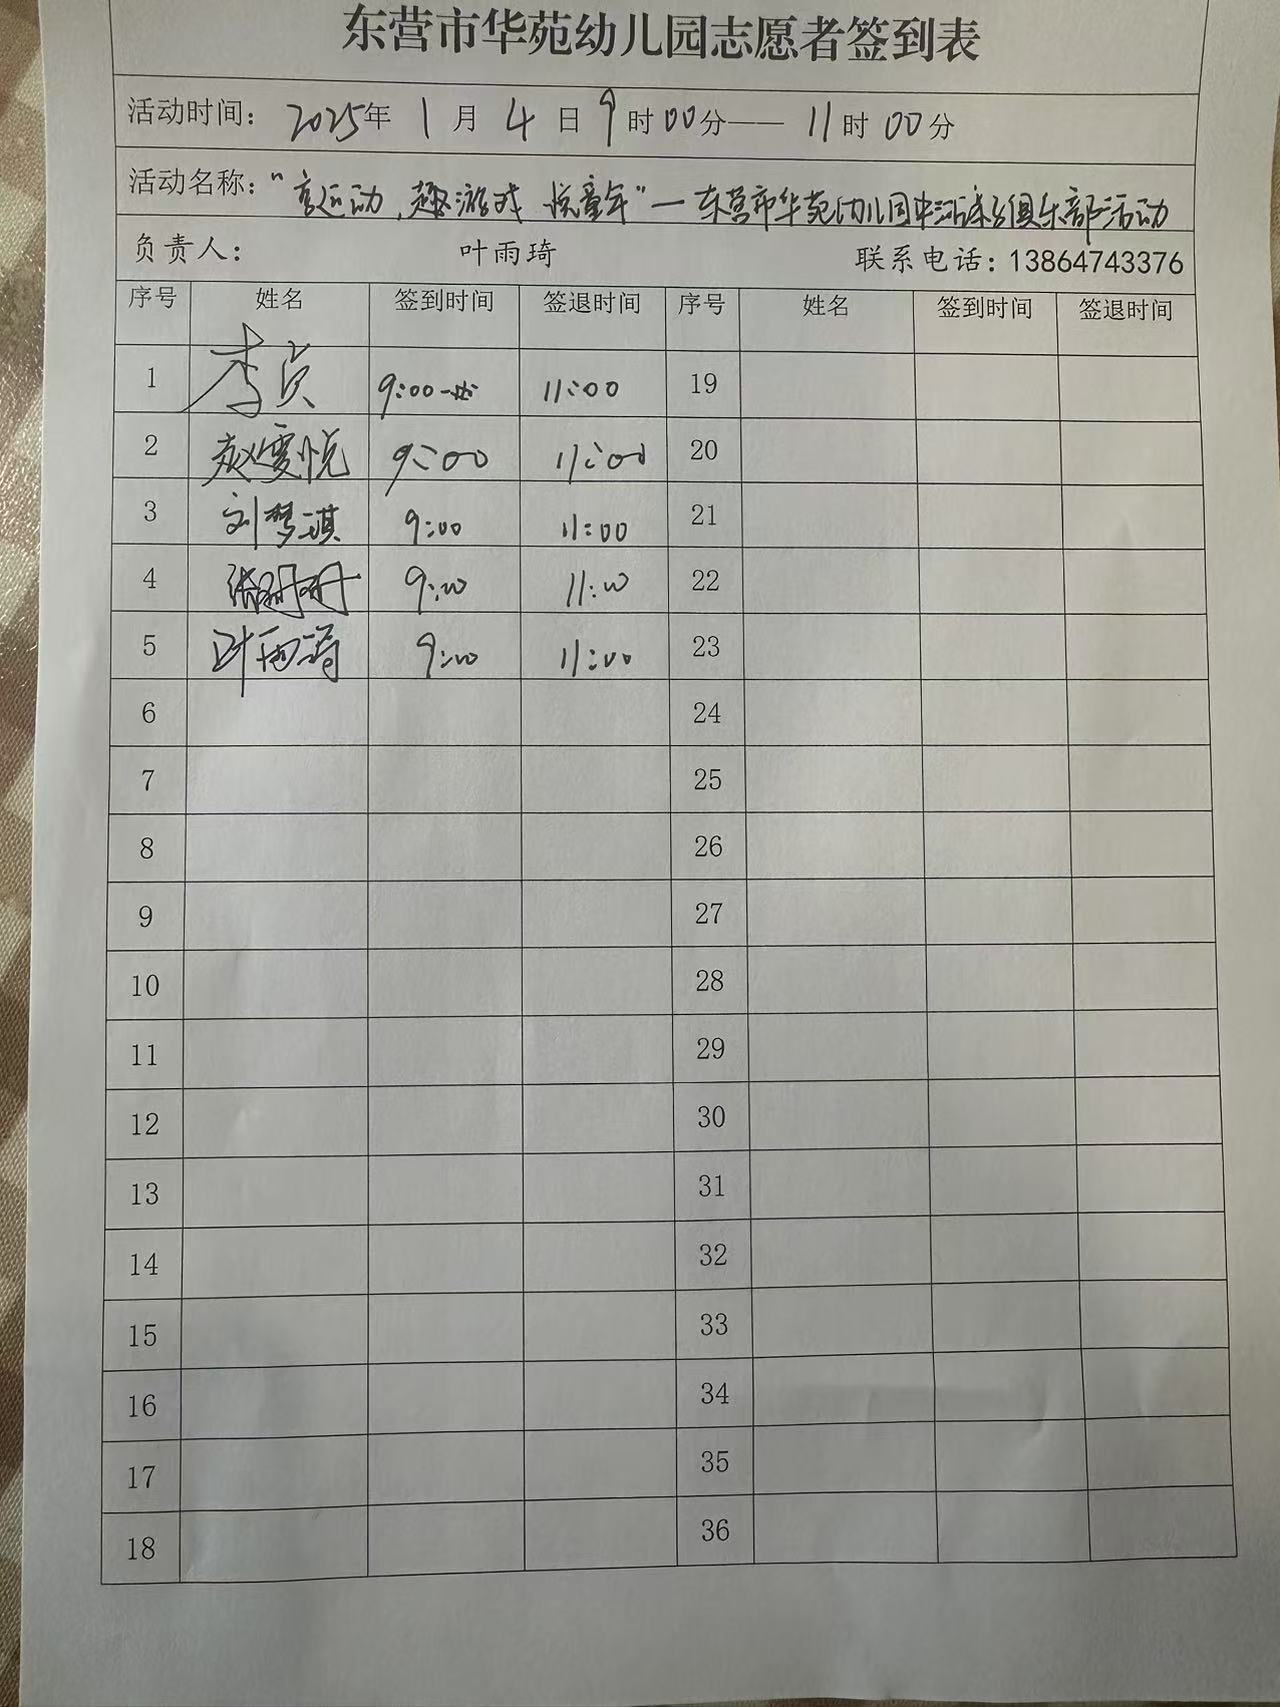 东营市华苑幼儿园志愿者签到表
活动时间： 2025年 1月 4日 9时00分—— 11时00分
活动名称：“享运动，趣游戏 悦童年”—东营市华苑幼儿园 亲子俱乐部活动
负责人： 叶雨琦 联系电话：13864743376
序号 姓名 签到时间 签退时间 序号 姓名 签到时间 签退时间
1 李贞 9:00 11:00 19
2 赵雯悦 9:00 11:00 20
3 刘梦琪 9:00 11:00 21
4 9:00 11:00 22
5 叶雨琦 9:00 11:00 23
6 24
7 25
8 26
9 27
10 28
11 29
12 30
13 31
14 32
15 33
16 34
17 35
18 36